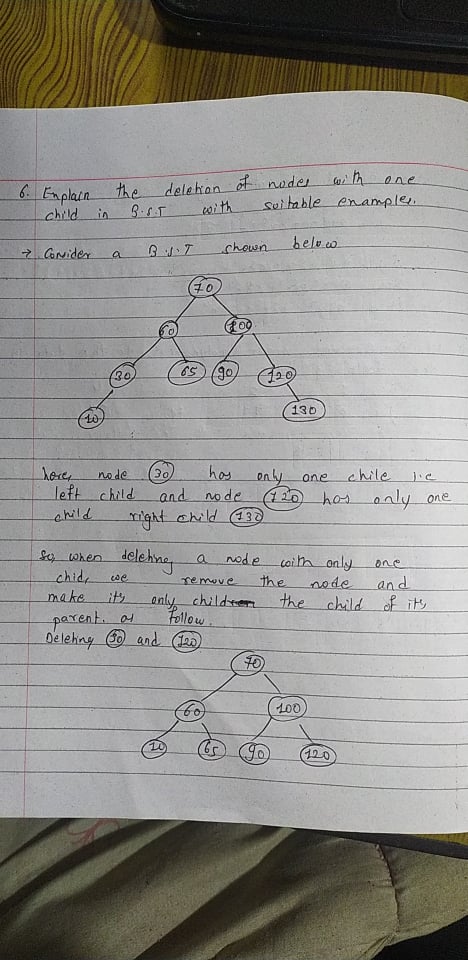 6. Explain the deletion of nodes with one
child in B.S.T with suitable examples.
→ Consider a B.S.T shown below
70
60 100
30 65 90 120
10 130
here, node 30 has only one chile i.e
left child and node 120 has only one
child right child 130
So, when deleting a node with only one
chid, we remove the node and
make its only child the child of its
parent. as follow.
Deleting 30 and 120
70
60 100
10 65 90 120